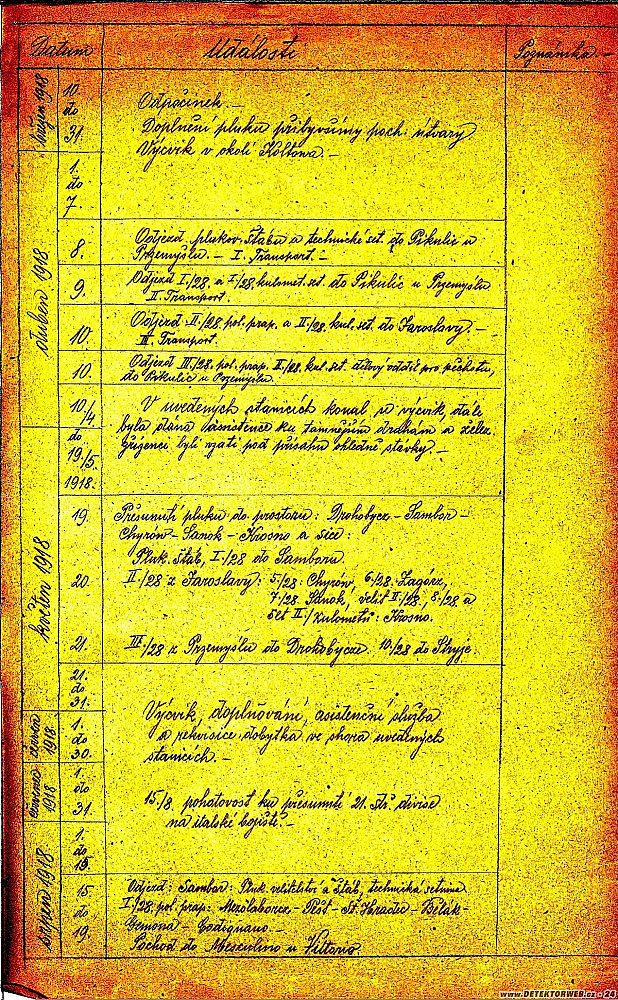 Datum Události Poznámka.-
březen 1918 10. do 31. Odpočinek.-
Doplnění pluku přibyvšími poch. útvary
Výcvik v okolí Koltowa.-
1. do 7.
duben 1918
8. Odjezd plukov. štábu a technické set. do Pikulic u
Przemyšlu.- I. Transport.-
9. Odjezd I./28. a I/28. kulomet. set. do Pikulic u Przemyšlu
II. Transport.
10. Odjezd II./28. pol. prap. a II/28. kul. set. do Jaroslavy.-
III. Transport.
10. Odjezd III./28. pol. prap. II./28. kul. set. dělový oddíl pro pěchotu,
do Pikulic u Przemyšlu.
10./4. do 19./5. 1918. V uvedených stanicích konal se výcvik, dále
byla dána asistence ku tamnějším drahám a želez.
zřízenci byli vzati pod přísahu ohledně stávky.-
květen 1918
19. Přesunutí pluku do prostoru: Drohobycz - Sambor -
Chyrów - Sanok - Krosno a sice:
Pluk. štáb, I/28 do Samboru.
20. II/28 z Jaroslavy: 5./28: Chyrów, 6./28. Zagórz,
7/28 Sanok, velit. II/28., 8./28. a
set II./kulometů: Krosno.
21. III/28 z Przemyšlu do Drohobycze. 10./28 do Stryje.
21. do 31.
červen 1918. 1. do 30. Výcvik, doplňování, asistenční služba
a rekvisice dobytka ve shora uvedených
stanicích.-
1. do 31.
1918
15./8. pohotovost ku přesunutí 21. stř. divise
na italské bojiště.-
srpen 1918 1. do 15.
15. do 19. Odjezd: Sambor: Pluk. velitelství a štáb, technická setnina
I./28. pol. prap: Mezölaborcz - Pešť - St. Hradec - Bělák -
Gemona - Codignano.-
Pochod do Mescolino u Vittorio
www.DETEKTORWEB.cz - 24